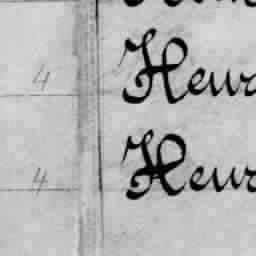 4 Henr
4 Henr